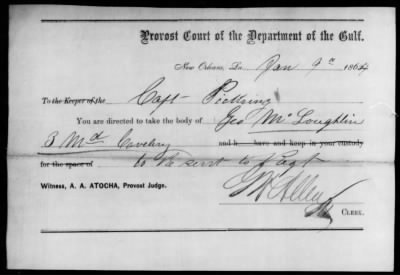 Provost Court of the Department of the Gulf.
New Orleans, La Jan 9th 1864
To the Keeper of the Capt Pickering
You are directed to take the body of Geo McLoughlin
3 Md Cavalry and h have and keep in your custody
for the space of to be sent to Regt
Witness, A. A. ATOCHA, Provost Judge.
CLERK.